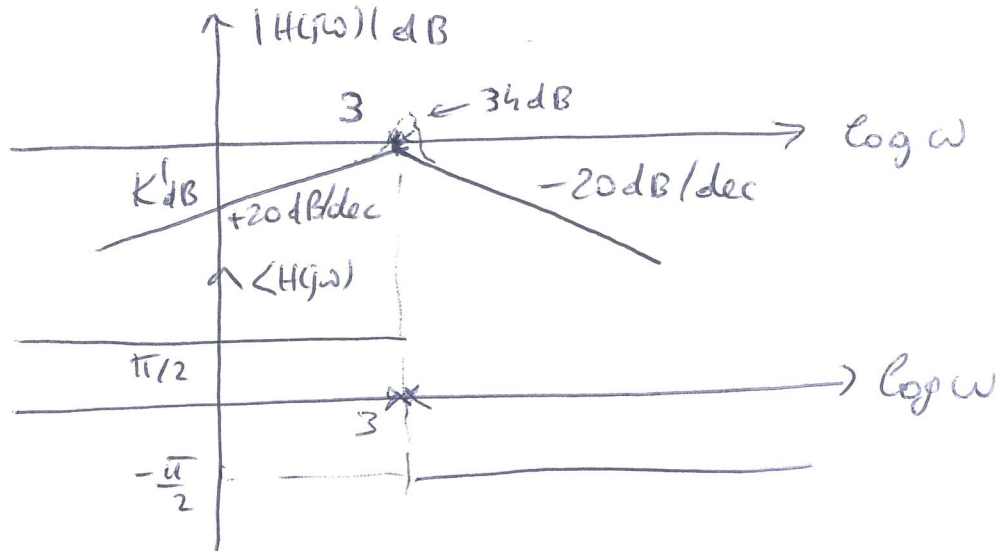 |H(jω)| dB
3
34dB
log ω
K'dB
+20dB/dec
-20dB/dec
<H(jω)
π/2
log ω
3
-π/2